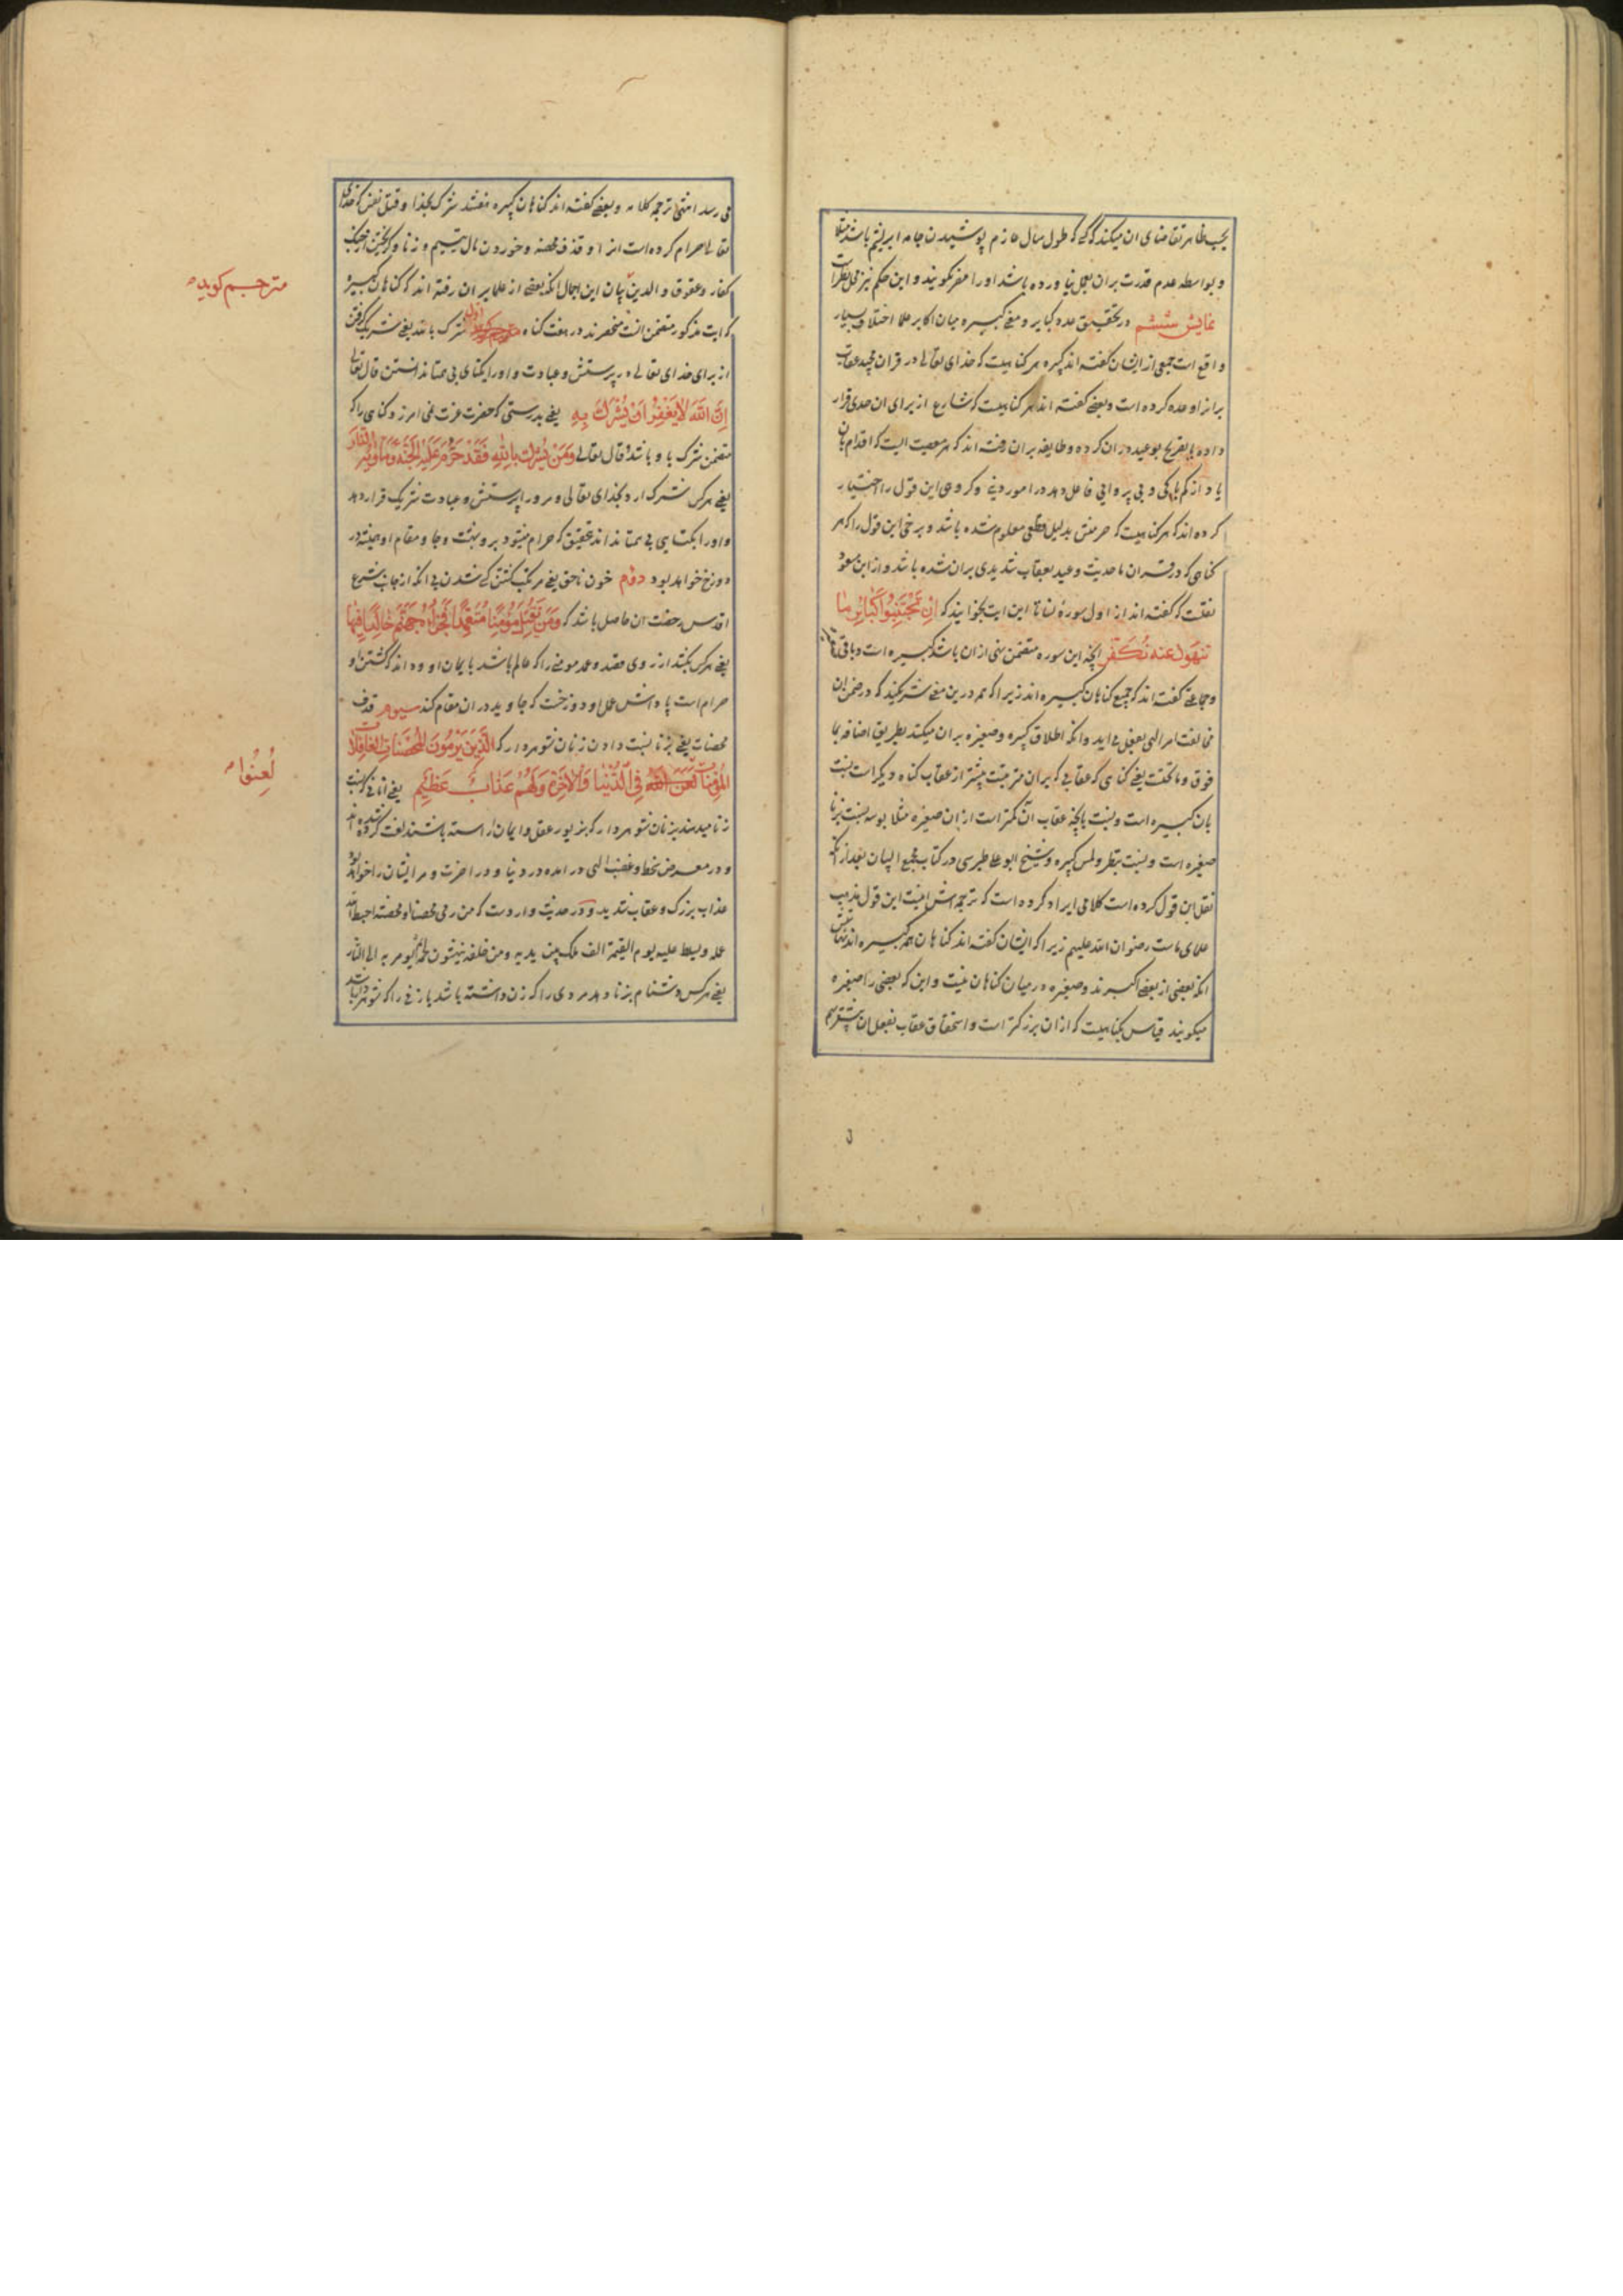 یجب ظاهر تقاضای ان میکند که کسی که طول سال عازم پوشیدن جامه ابریشم باشد مثلا
و بواسطه عدم قدرت بران بعمل نیاورده باشد او را مصر نکویند و این حکم نیز محل نظر است
نمایش ششم در تحقیق عدد کبایر و معنی کبیره میان اکابر علما اختلاف بسیار
واقع است جمعی از ایشان کفته اند کبیره هر کناهیست که خدای تعالی در قران مجید عقاب
برانرا وعده کرده است و بعضی کفته اند هر کناهیست که شارع از برای ان حدی قرار
داده یا تصریح بوعید در ان کرده و طایفه بران رفته اند که هر معصیت است که اقدام بان
یاد از کم باکی و بی پروایی فاعل دهد در امور دینی و کروهی این قول را اختیار
کرده اند که هر کناهیست که حرمتش بدلیل قطعی معلوم شده باشد و برخی این قول را که هر
کناهی که در قران یا حدیث وعید بعقاب شدیدی بران شده باشد و از ابن مسعود
نقلست که کفته اند از اول سوره نسا تا این ایت بخوانید که ان تجتنبوا کبائر ما
تنهون عنه نکفر انچه این سوره متضمن نهی از ان باشد کبیره است
و جماعتی کفته اند که جمیع کناهان کبیره اند زیرا که همه درین معنی شریکند که در ضمن ان
مخالفت امر الهی بفعل می اید و انکه اطلاق کبیره و صغیره بران میکنند بطریق اضافه بما
فوق و ما تحتست یعنی کناهی که عقابی که بران مترتبست بیشتر از عقاب کناه دیکر است نسبت
بان کبیره است و نسبت بانچه عقاب آن کمتر است از ان صغیره مثلا بوسه نسبت بزنا
صغیره است و نسبت بنظر و لمس کبیره و شیخ ابو علی طبرسی در کتاب مجمع البیان بعد از آنکه
نقل این قول کرده است کلامی ایراد کرده است که ترجمه اش اینست این قول مذهب
علمای ماست رضوان الله علیهم زیرا که ایشان کفته اند کناهان همه کبیره اند
انکه بعضی از بعضی اکبرند و صغیره در میان کناهان نیست و این که بعضی را صغیره
میکویند قیاس بکناهیست که از ان بزرکتر است و استحقاق عقاب بفعل ان بیشتر بهم
می رسد انتهی ترجمه کلامه و بعضی کفته اند کناهان کبیره هفتند شرک بخدا و قتل نفسی که خدای
تعالی حرام کرده است انرا و قذف محصنه و خوردن مال یتیم و زنا و کریختن از جنک
کفار و عقوق والدین بیان این اجمال انکه بعضی از علما بر ان رفته اند که کناهان کبیره
که ایت مذکور متضمن انست منحصرند در هفت کناه اول شرک بالله یعنی شریک کرفتن
از برای خدای تعالی در پرستش و عبادت و او را یکتای بی همتا ندانستن قال تعالی
إن الله لا يغفر أن يشرك به یعنی بدرستی که حضرت عزت نمی امرزد کناهی را که
متضمن شرک باو باشد و قال تعالی ومن يشرك بالله فقد حرم عليه الجنة ومأويه النار
یعنی هر کس شرک ارد بخدای تعالی و مر او را در پرستش و عبادت شریک قرار دهد
و او را بیکتایی بی همتا نداند بتحقیق که حرام میشود برو بهشت و جا و مقام او همیشه در
دوزخ خواهد بود دوم خون ناحق یعنی مرتکب کشتن کسی شدن بی انکه از جانب شرع
اقدس رخصت ان حاصل باشد که ومن يقتل مؤمنا متعمدا فجزاؤه جهنم خالدا فيها
یعنی هر کس بکشد از روی قصد و عمد مومنی را که عالم باشد بایمان او و داند که کشتن او
حرام است پاداش عمل او دوزخست که جاوید در ان مقام کند سیوم قذف
محصنات یعنی بزنا نسبت دادن زنان شوهردار که الذين يرمون المحصنات الغافلات
المؤمنات لعن الله في الدنيا والآخرة ولهم عذاب عظيم یعنی انانی که نسبت
زنا میدهند بزنان شوهردار که بزیور عقل و ایمان اراسته باشند لعنت کرده شده اند
و در معرض سخط و غضب الهی در امده در دنیا و در اخرت و مر ایشان را خواهد بود
عذاب بزرک و عقاب شدید و در حدیث واردست که من رمی محصنا او محصنة احبط الله
عمله ویسلط علیه یوم القیمة الف ملک بین یدیه ومن خلفه ینهشون لحمه ثم یؤمر به الی النار
یعنی هر کس دشنام بزنا دهد مردی را که زن داشته باشد یا زنی را که شوهردار باشد
مترجم کوید
لعنوا